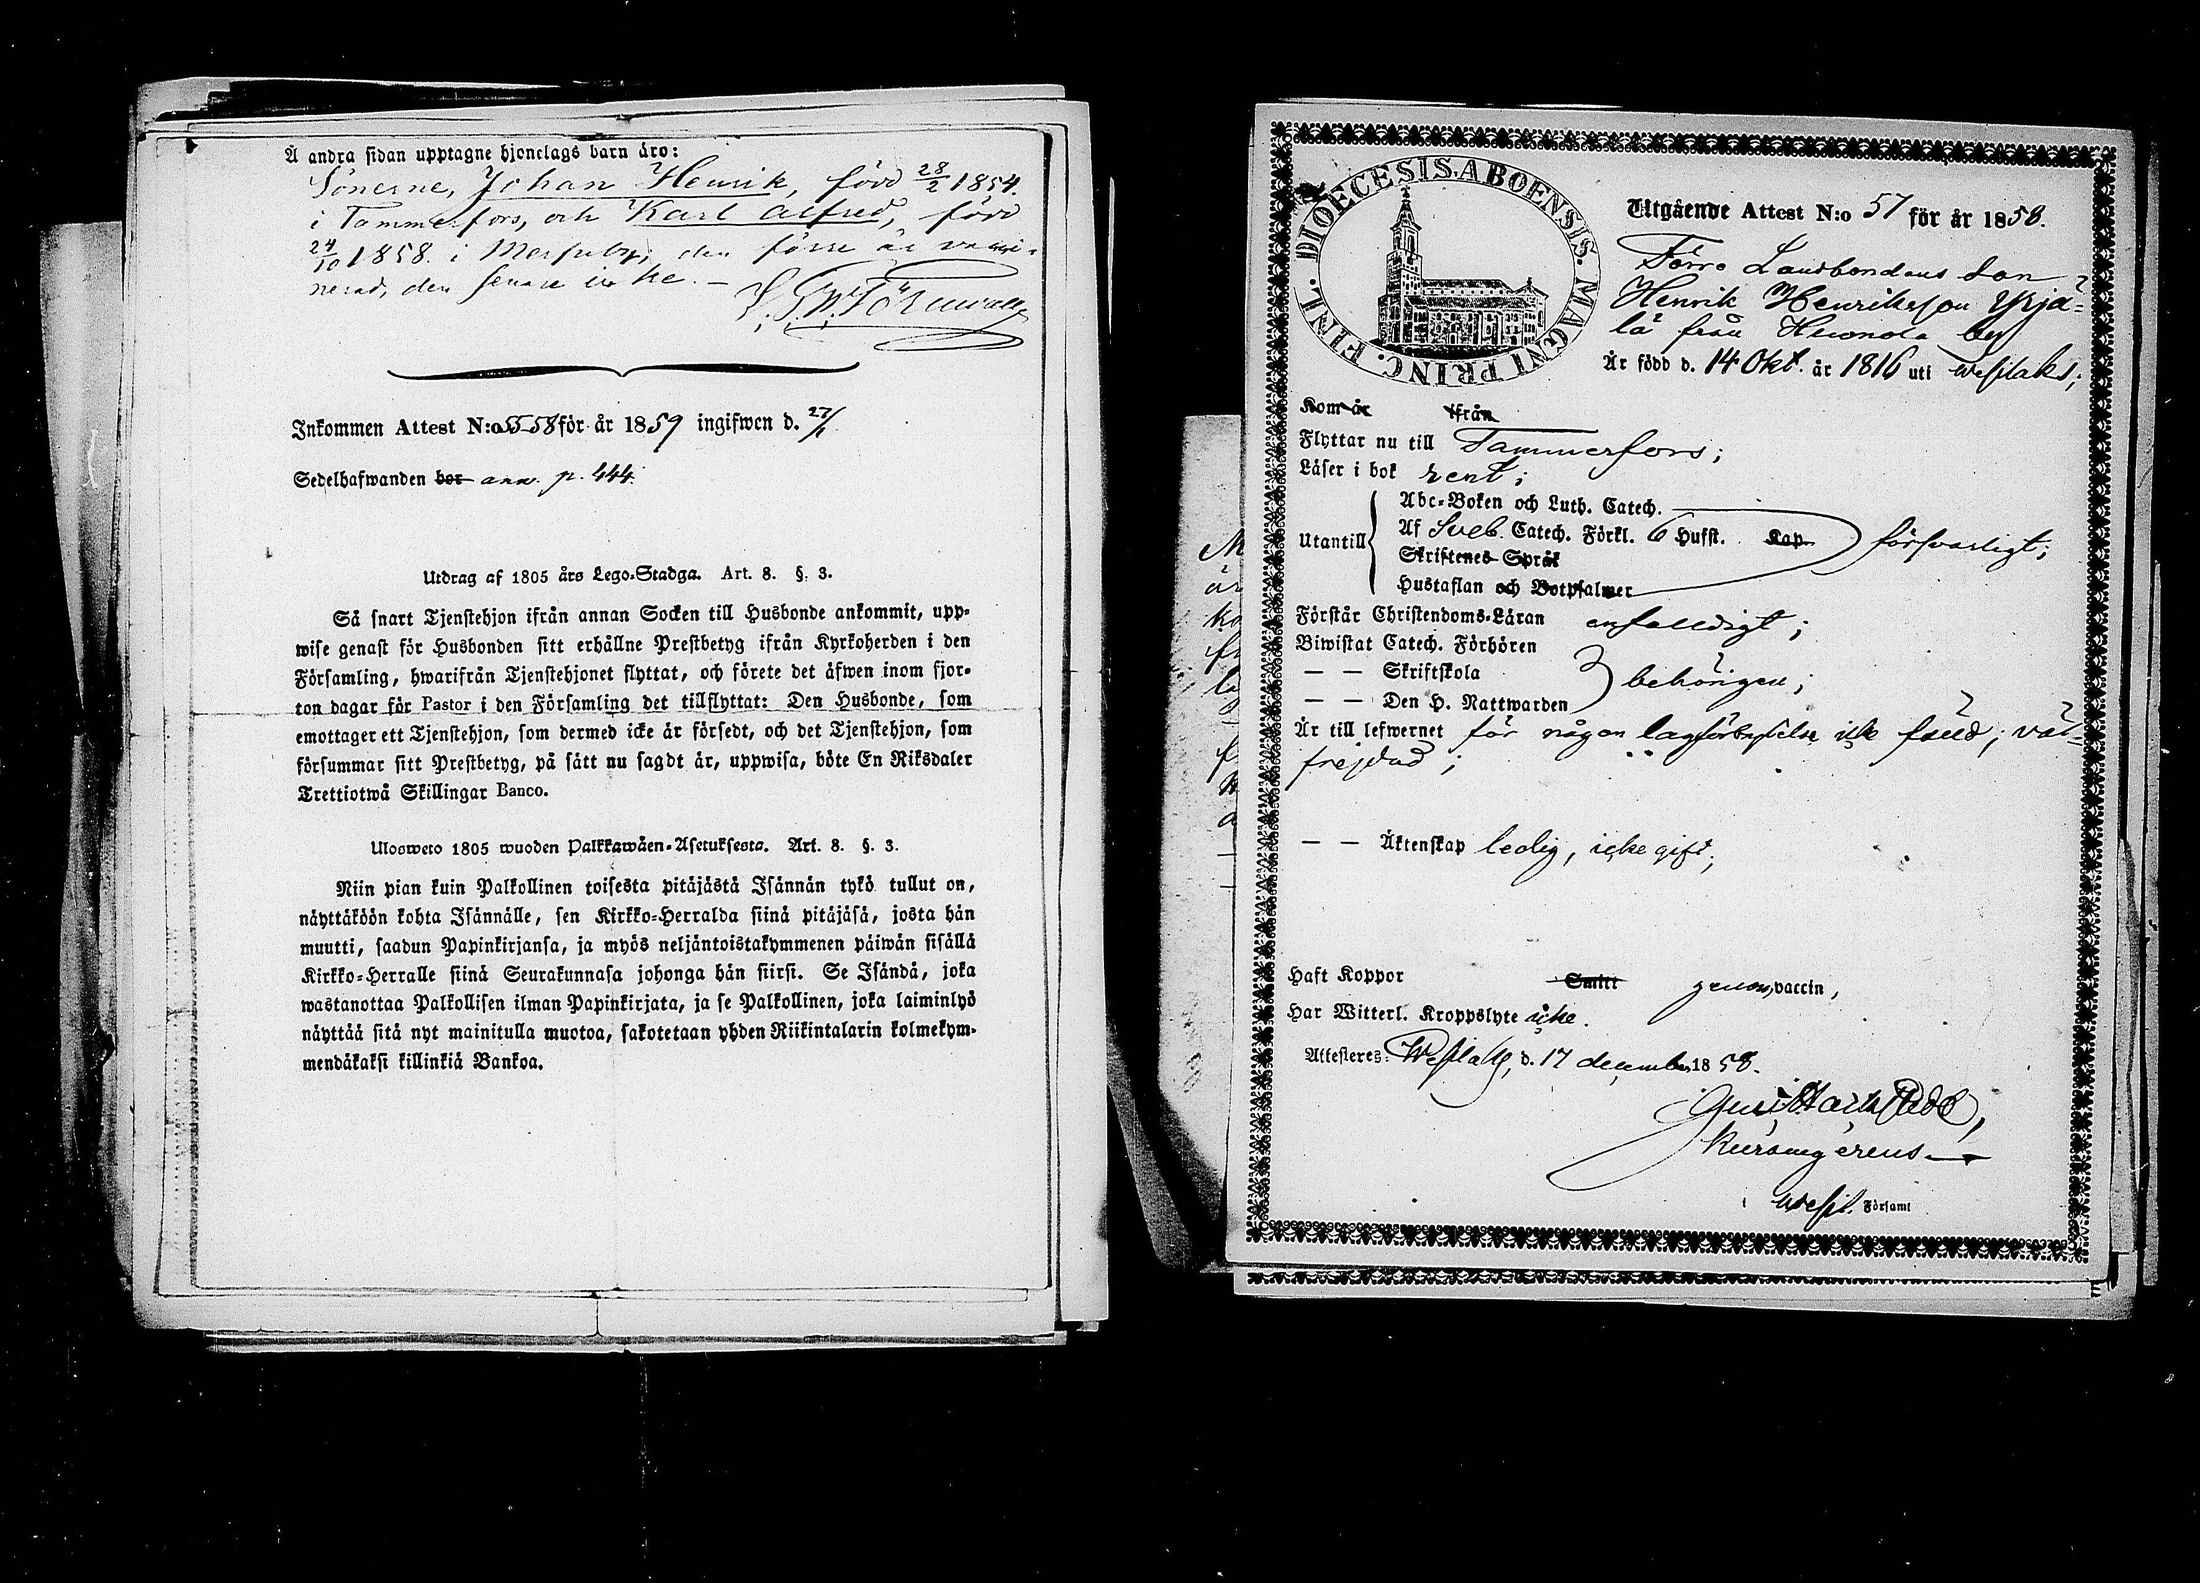 Å andra sidan upptagne hjonelags barn äro:
Sönerne, Johan Henrik, född 28/2 1854.
i Tammerfors, och Karl Alfred, född
24/10 1858. i Messuby; den förre är vacci-
nerad, den senare icke. —
Inkommen Attest N:o 558 för år 1859 ingifwen d. 27/1
Sedelhafwanden bor ann. p. 444.
Utdrag af 1805 års Lego-Stadga. Art. 8. §. 3.
Så snart Tjenstehjon ifrån annan Socken till Husbonde ankommit, upp-
wise genast för Husbonden sitt erhållne Prestbetyg ifrån Kyrkoherden i den
Församling, hwarifrån Tjenstehjonet flyttat, och förete det äfwen inom fjor-
ton dagar för Pastor i den Församling det tillflyttat: Den Husbonde, som
emottager ett Tjenstehjon, som dermed icke är försedt, och det Tjenstehjon, som
försummar sitt Prestbetyg, på sätt nu sagdt är, uppwisa, böte En Riksdaler
Trettiotwå Skillingar Banco.
Ulosweto 1805 wuoden Palkkawäen-Asetuksesta. Art. 8. §. 3.
Niin pian kuin Palkollinen toisesta pitäjästä Isännän tykö tullut on,
näyttäköön kohta Isännälle, sen Kirkko-Herralda siinä pitäjäsä, josta hän
muutti, saadun Papinkirjansa, ja myös neljäntoistakymmenen päiwän sisällä
Kirkko-Herralle siinä Seurakunnasa johonga hän siirsi. Se Isändä, joka
wastanottaa Palkollisen ilman Papinkirjata, ja se Palkollinen, joka laiminlyö
näyttää sitä nyt mainitulla muotoa, sakotetaan yhden Riikintalarin kolmekym-
mendäkaksi killinkiä Bankoa.
DIOECESIS ABOENSIS. MAGNI PRINC. FINL.
Utgående Attest N:o 57 för år 1858.
Förre Landbondens Son
Henrik Henriksson Yrjä-
lä från Heinola by
Är född d. 14 Okt. år 1816 uti Wesilaks;
Kom år ifrån
Flyttar nu till Tammerfors;
Läser i bok rent;
Utantill
Abc-Boken och Luth. Catech.
Af Sveb. Catech. Förkl. 6 Hufst. Kap. försvarligt;
Skriftenes Språk
Hustaflan och Botpsalmer
Förstår Christendoms-Läran enfaldigt;
Biwistat Catech. Förhören
— — Skriftskola behörigen;
— — Den H. Nattwarden
Är till lefwernet för någon lagförbrytelse ick fälld; väl-
frejdad;
— — Äktenskap ledig, icke gift;
Haft Koppor Smitt genom vaccin,
Har Witterl. Kroppslyte icke.
Attesteres: Wesilaks, d. 17 december 1858.
Wesil. Församl